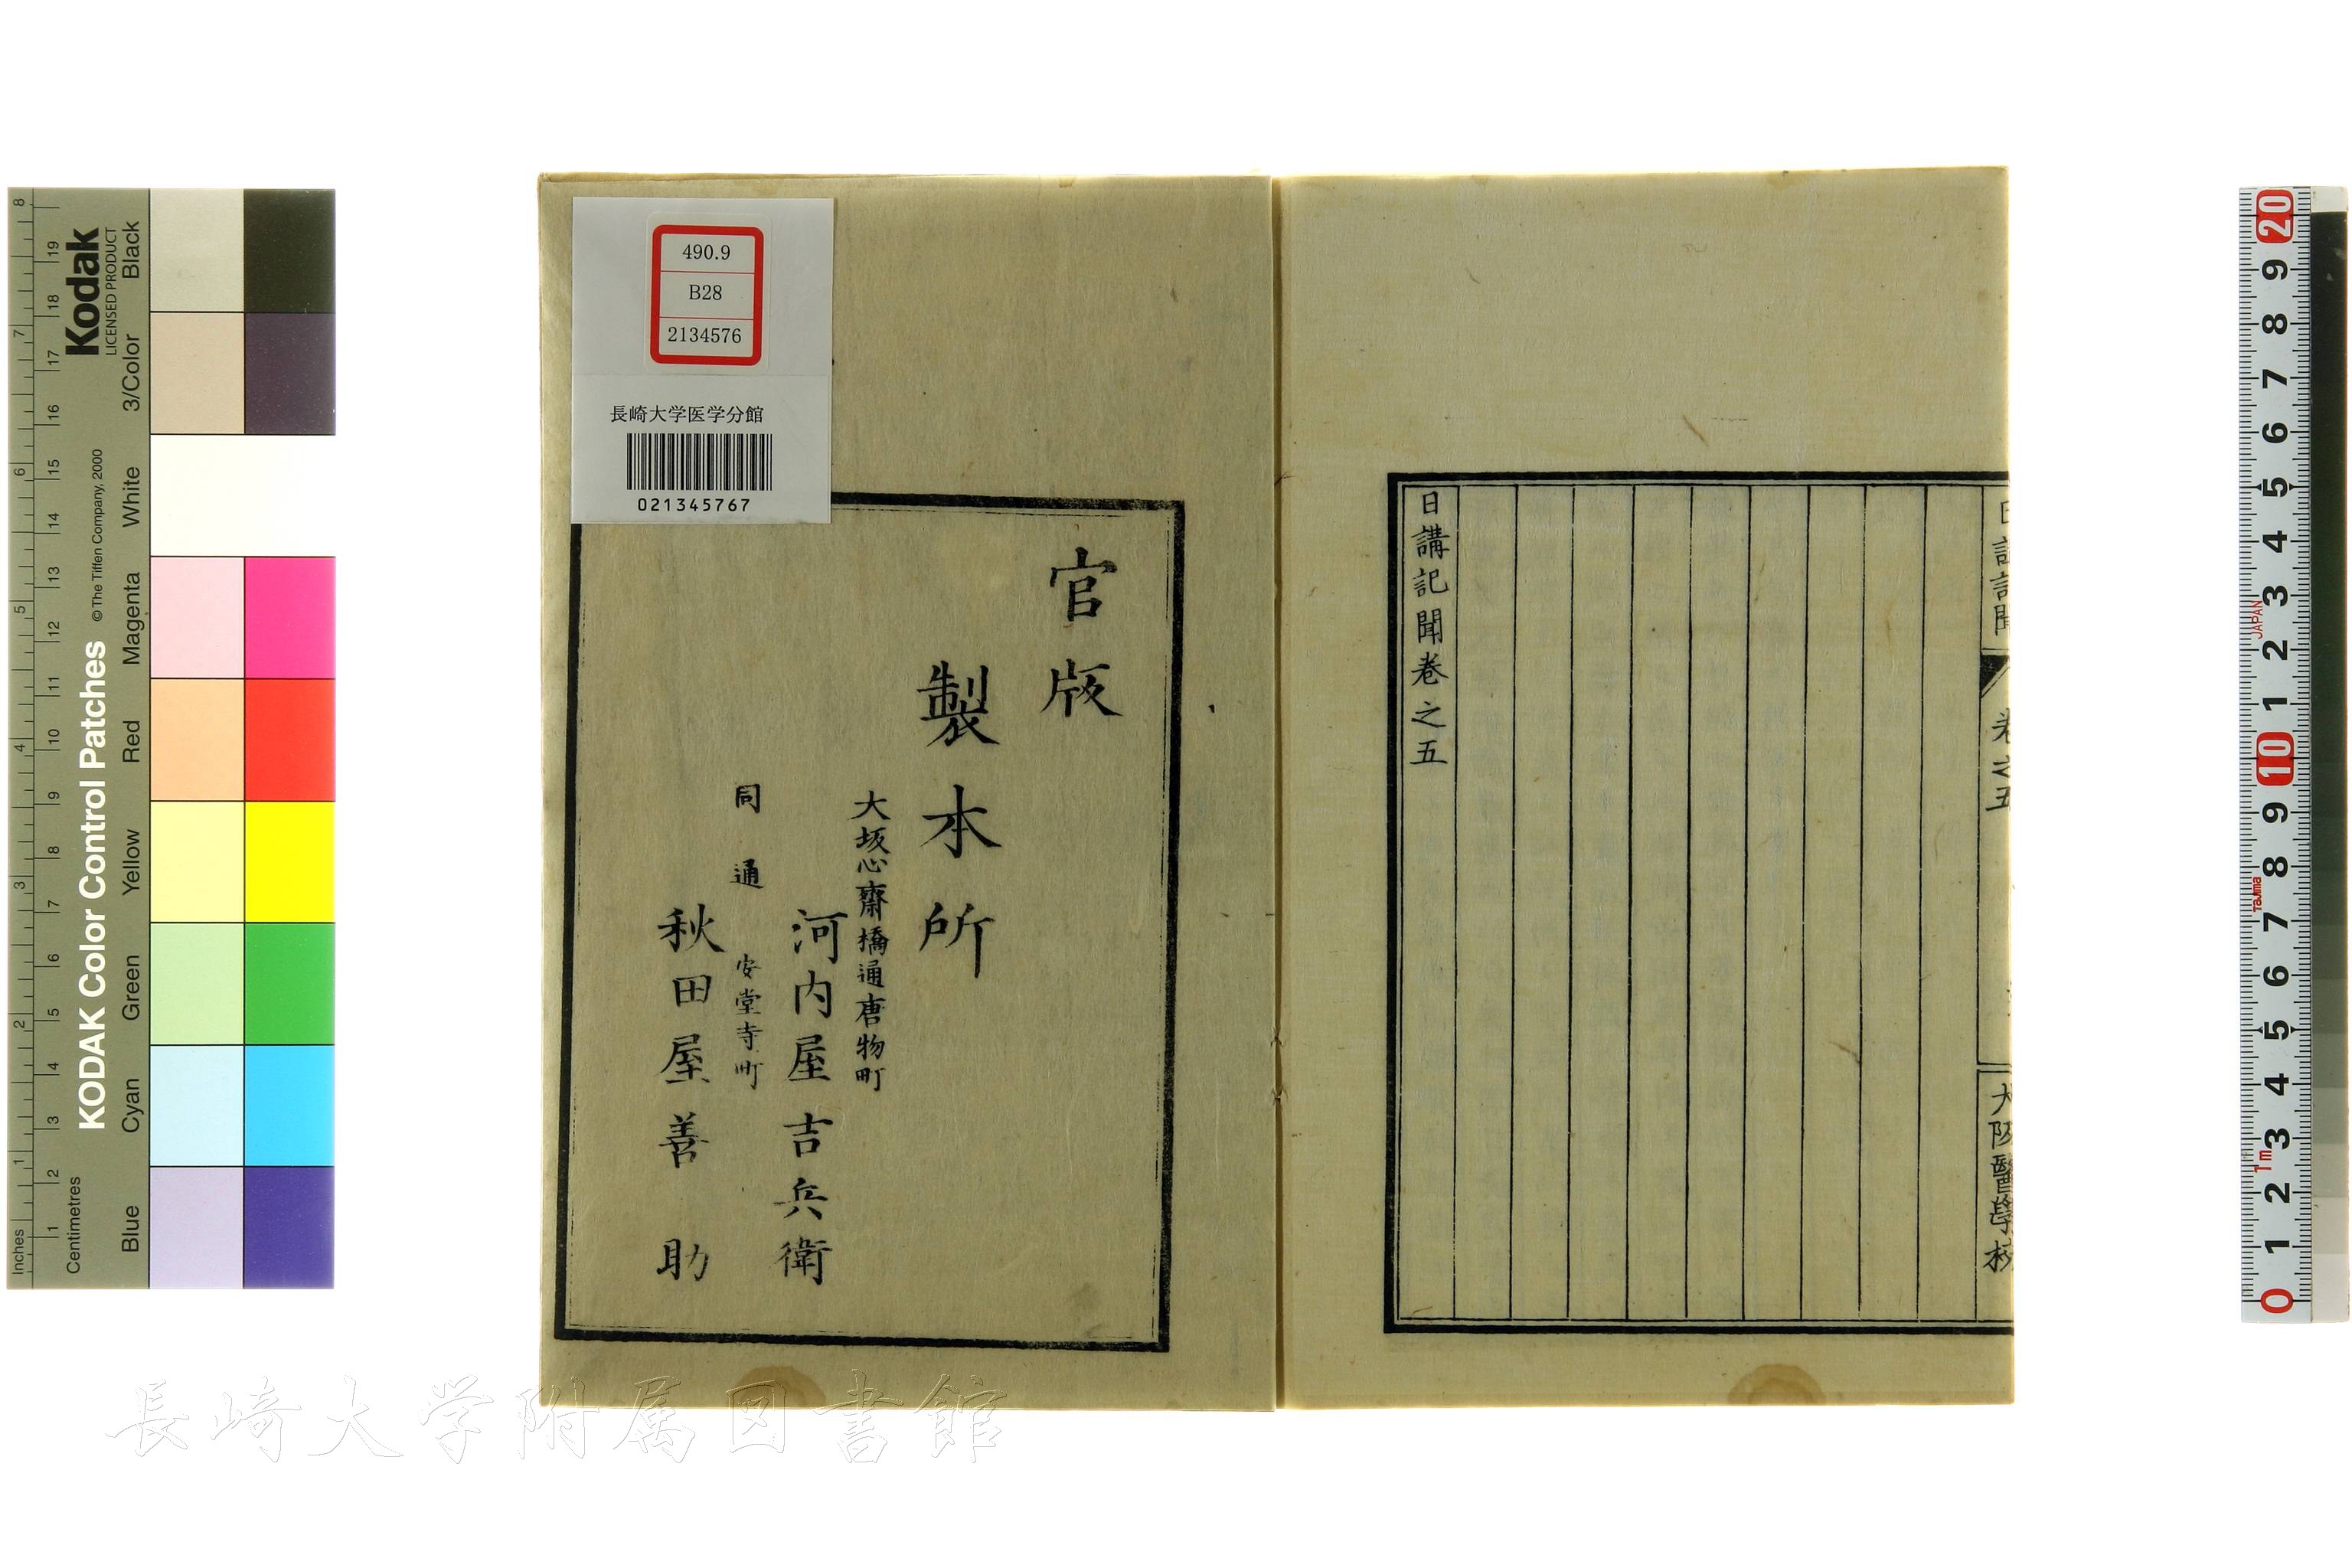 日講記聞
卷之五
大阪醫學校
日講記聞卷之五
官版
製本所
大坂心齋橋通唐物町
河内屋吉兵衛
同通安堂寺町
秋田屋善助
490.9
B28
2134576
長崎大学医学分館
021345767
Kodak
LICENSED PRODUCT
KODAK Color Control Patches
©The Tiffen Company, 2000
Inches
Centimetres
Blue
Cyan
Green
Yellow
Red
Magenta
White
3/Color
Black
1 2 3 4 5 6 7 8
1 2 3 4 5 6 7 8 9 10 11 12 13 14 15 16 17 18 19
20 9 8 7 6 5 4 3 2 1 10 9 8 7 6 5 4 3 2 1 0
JAPAN
Tajima
1m
長崎大学附属図書館